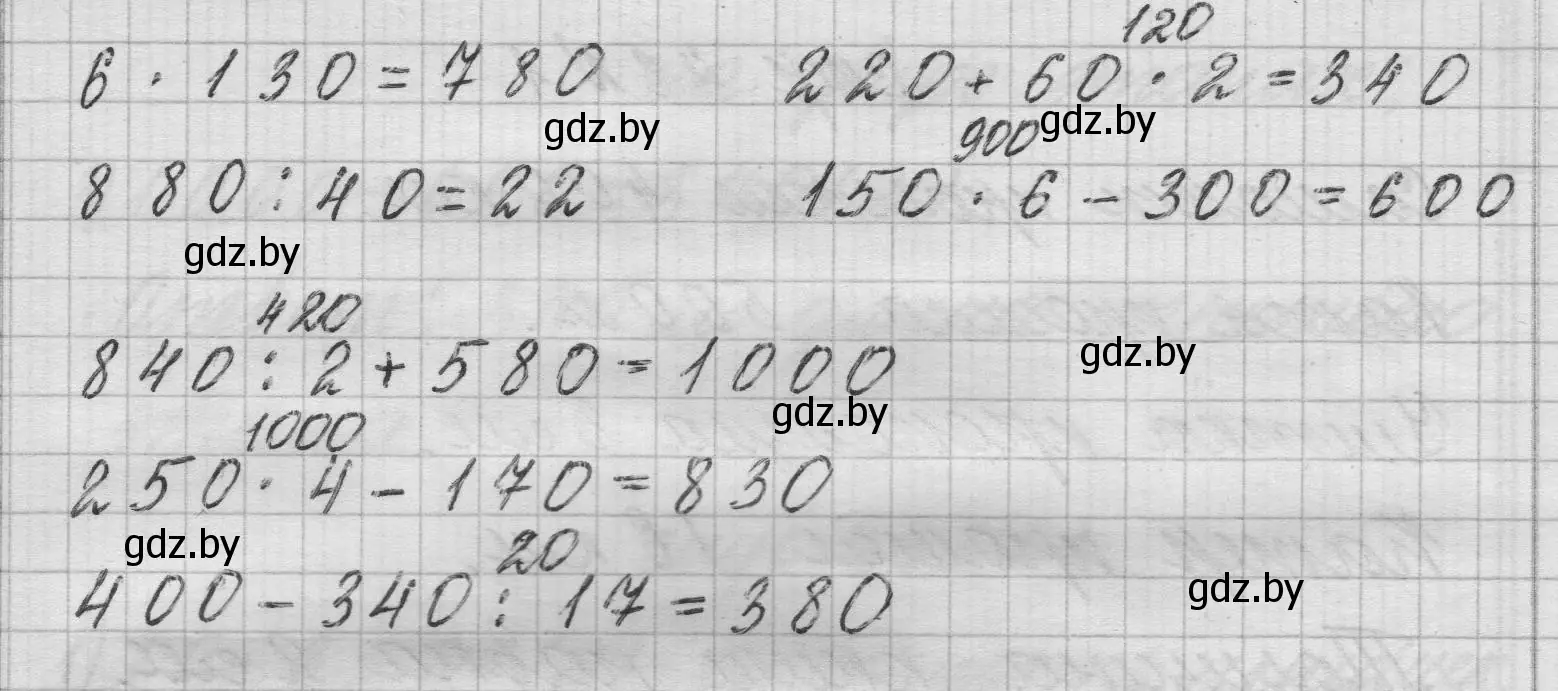 120
6 · 130 = 780 220 + 60 · 2 = 340
gdz.by 900 gdz.by
880 : 40 = 22 150 · 6 - 300 = 600
gdz.by
420
840 : 2 + 580 = 1000 gdz.by
1000 gdz.by
250 · 4 - 170 = 830
gdz.by 20
400 - 340 : 17 = 380 gdz.by